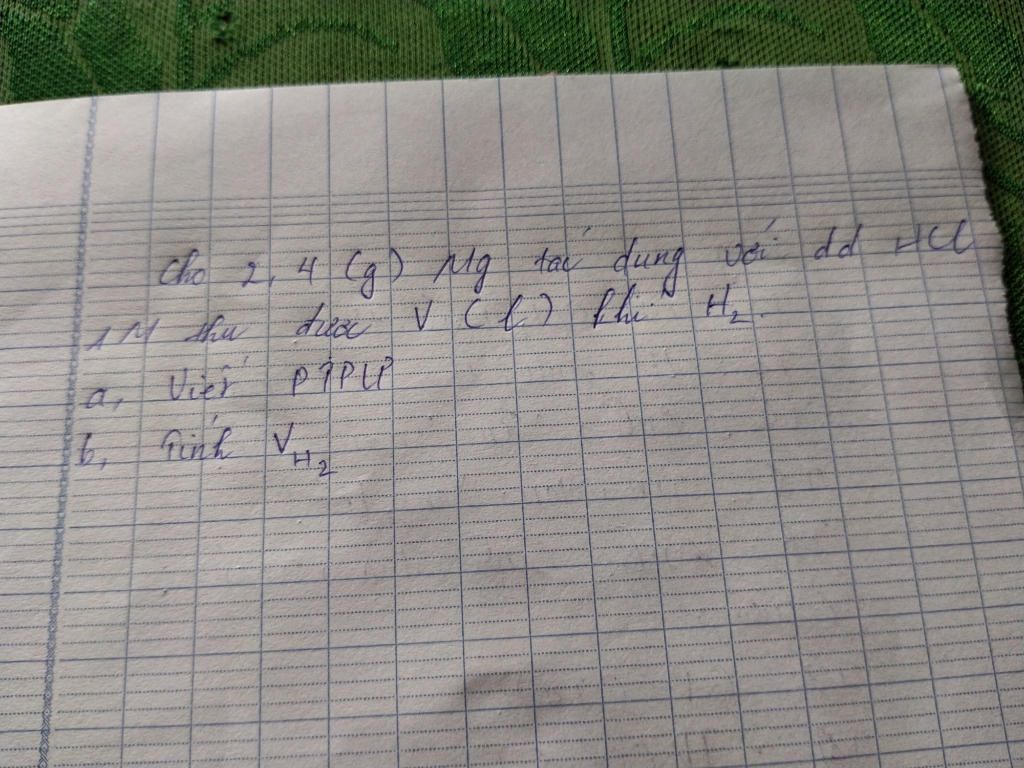 Cho 2,4 (g) Mg tác dụng với dd HCl
1M thu được V (l) khí H₂.
a, Viết PTPƯ
b, Tính V_H₂